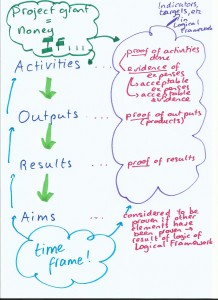 Project grant
=
money
IF...
Indicators,
targets, etc
in
Logical
Framework
Activities ....
proof of activities
done
evidence of
expenses
↳ acceptable
expenses
→ acceptable
evidence
Outputs ...
proof of outputs
(products)
Results ....
proof of results
Aims ....
considered to be
proven if other
elements have
been proven →
result of logic of
Logical Framework
time
frame!